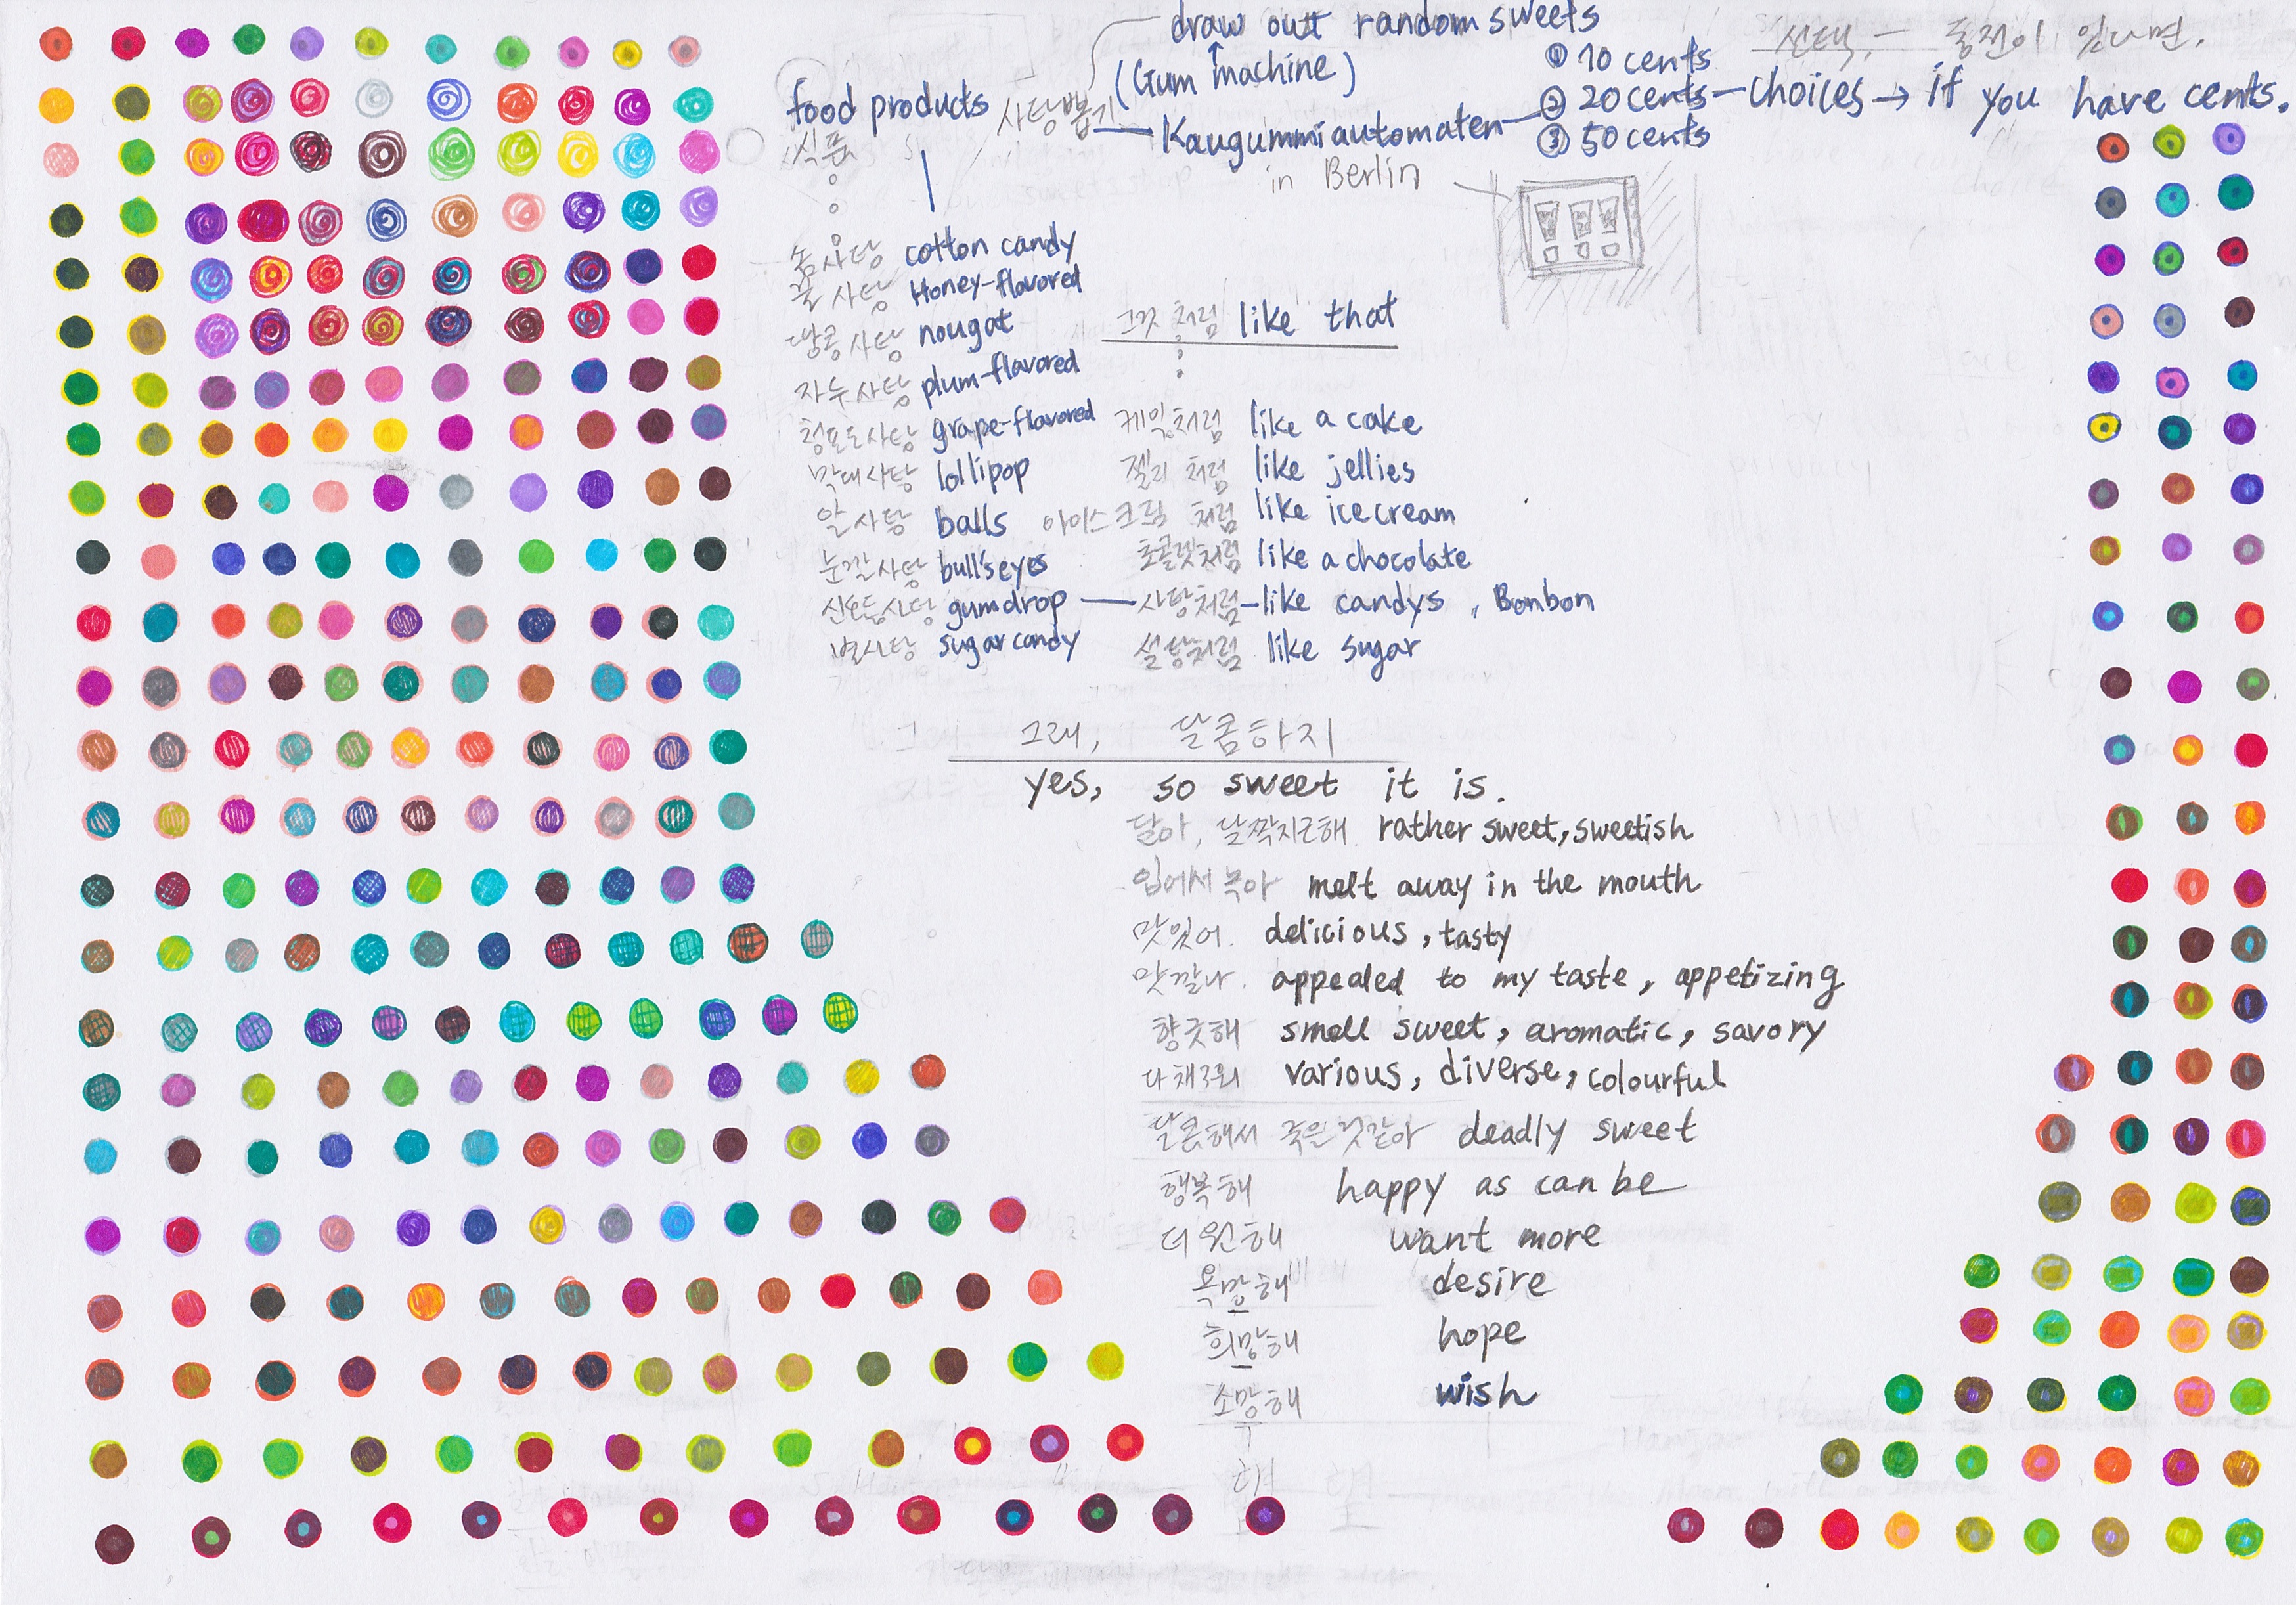 draw out random sweets
(Gum machine)
① 10 cents
선택, – 동전이 있다면.
food products 사탕뽑기 — Kaugummiautomaten — ② 20 cents — choices → if you have cents.
식품
③ 50 cents
in Berlin
솜사탕 cotton candy
꿀사탕 Honey-flavored
땅콩사탕 nougat
그것처럼 like that
자두사탕 plum-flavored
청포도사탕 grape-flavored
케잌처럼 like a cake
막대사탕 lollipop
젤리처럼 like jellies
알사탕 balls
아이스크림처럼 like icecream
눈깔사탕 bull's eyes
초콜릿처럼 like a chocolate
신호등사탕 gumdrop — 사탕처럼 – like candys, Bonbon
별사탕 sugar candy
설탕처럼 like sugar
그래, 달콤하지
yes, so sweet it is.
달아, 달짝지근해. rather sweet, sweetish
입에서 녹아 melt away in the mouth
맛있어. delicious, tasty
맛깔나. appealed to my taste, appetizing
향긋해 smell sweet, aromatic, savory
다채로워 various, diverse, colourful
달콤해서 죽을것같아 deadly sweet
행복해 happy as can be
더 원해 want more
욕망해 desire
희망해 hope
소망해 wish